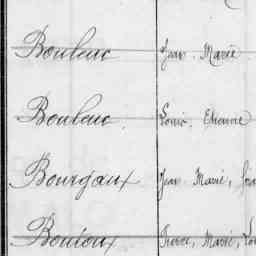 Bouleuc Jean Marie
Bouleuc Louis Etienne
Bourgaux Jean Marie,
Boutoux Pierre, Marie,